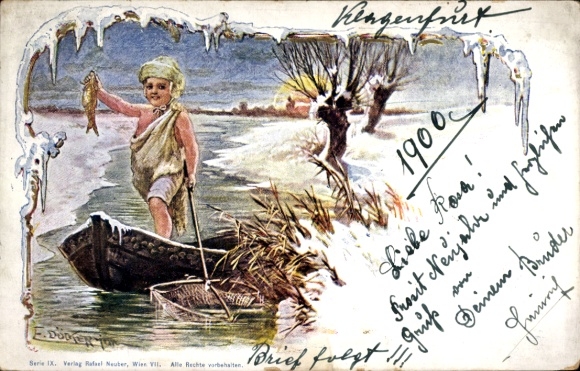 Klagenfurt.
1900
Liebe Rosa!
Prosit Neujahr und herzlichsten
Gruß von
Deinem Bruder
Heinrich
Brief folgt !!!
E. DÖCKER
Serie IX. Verlag Rafael Neuber, Wien VII. Alle Rechte vorbehalten.